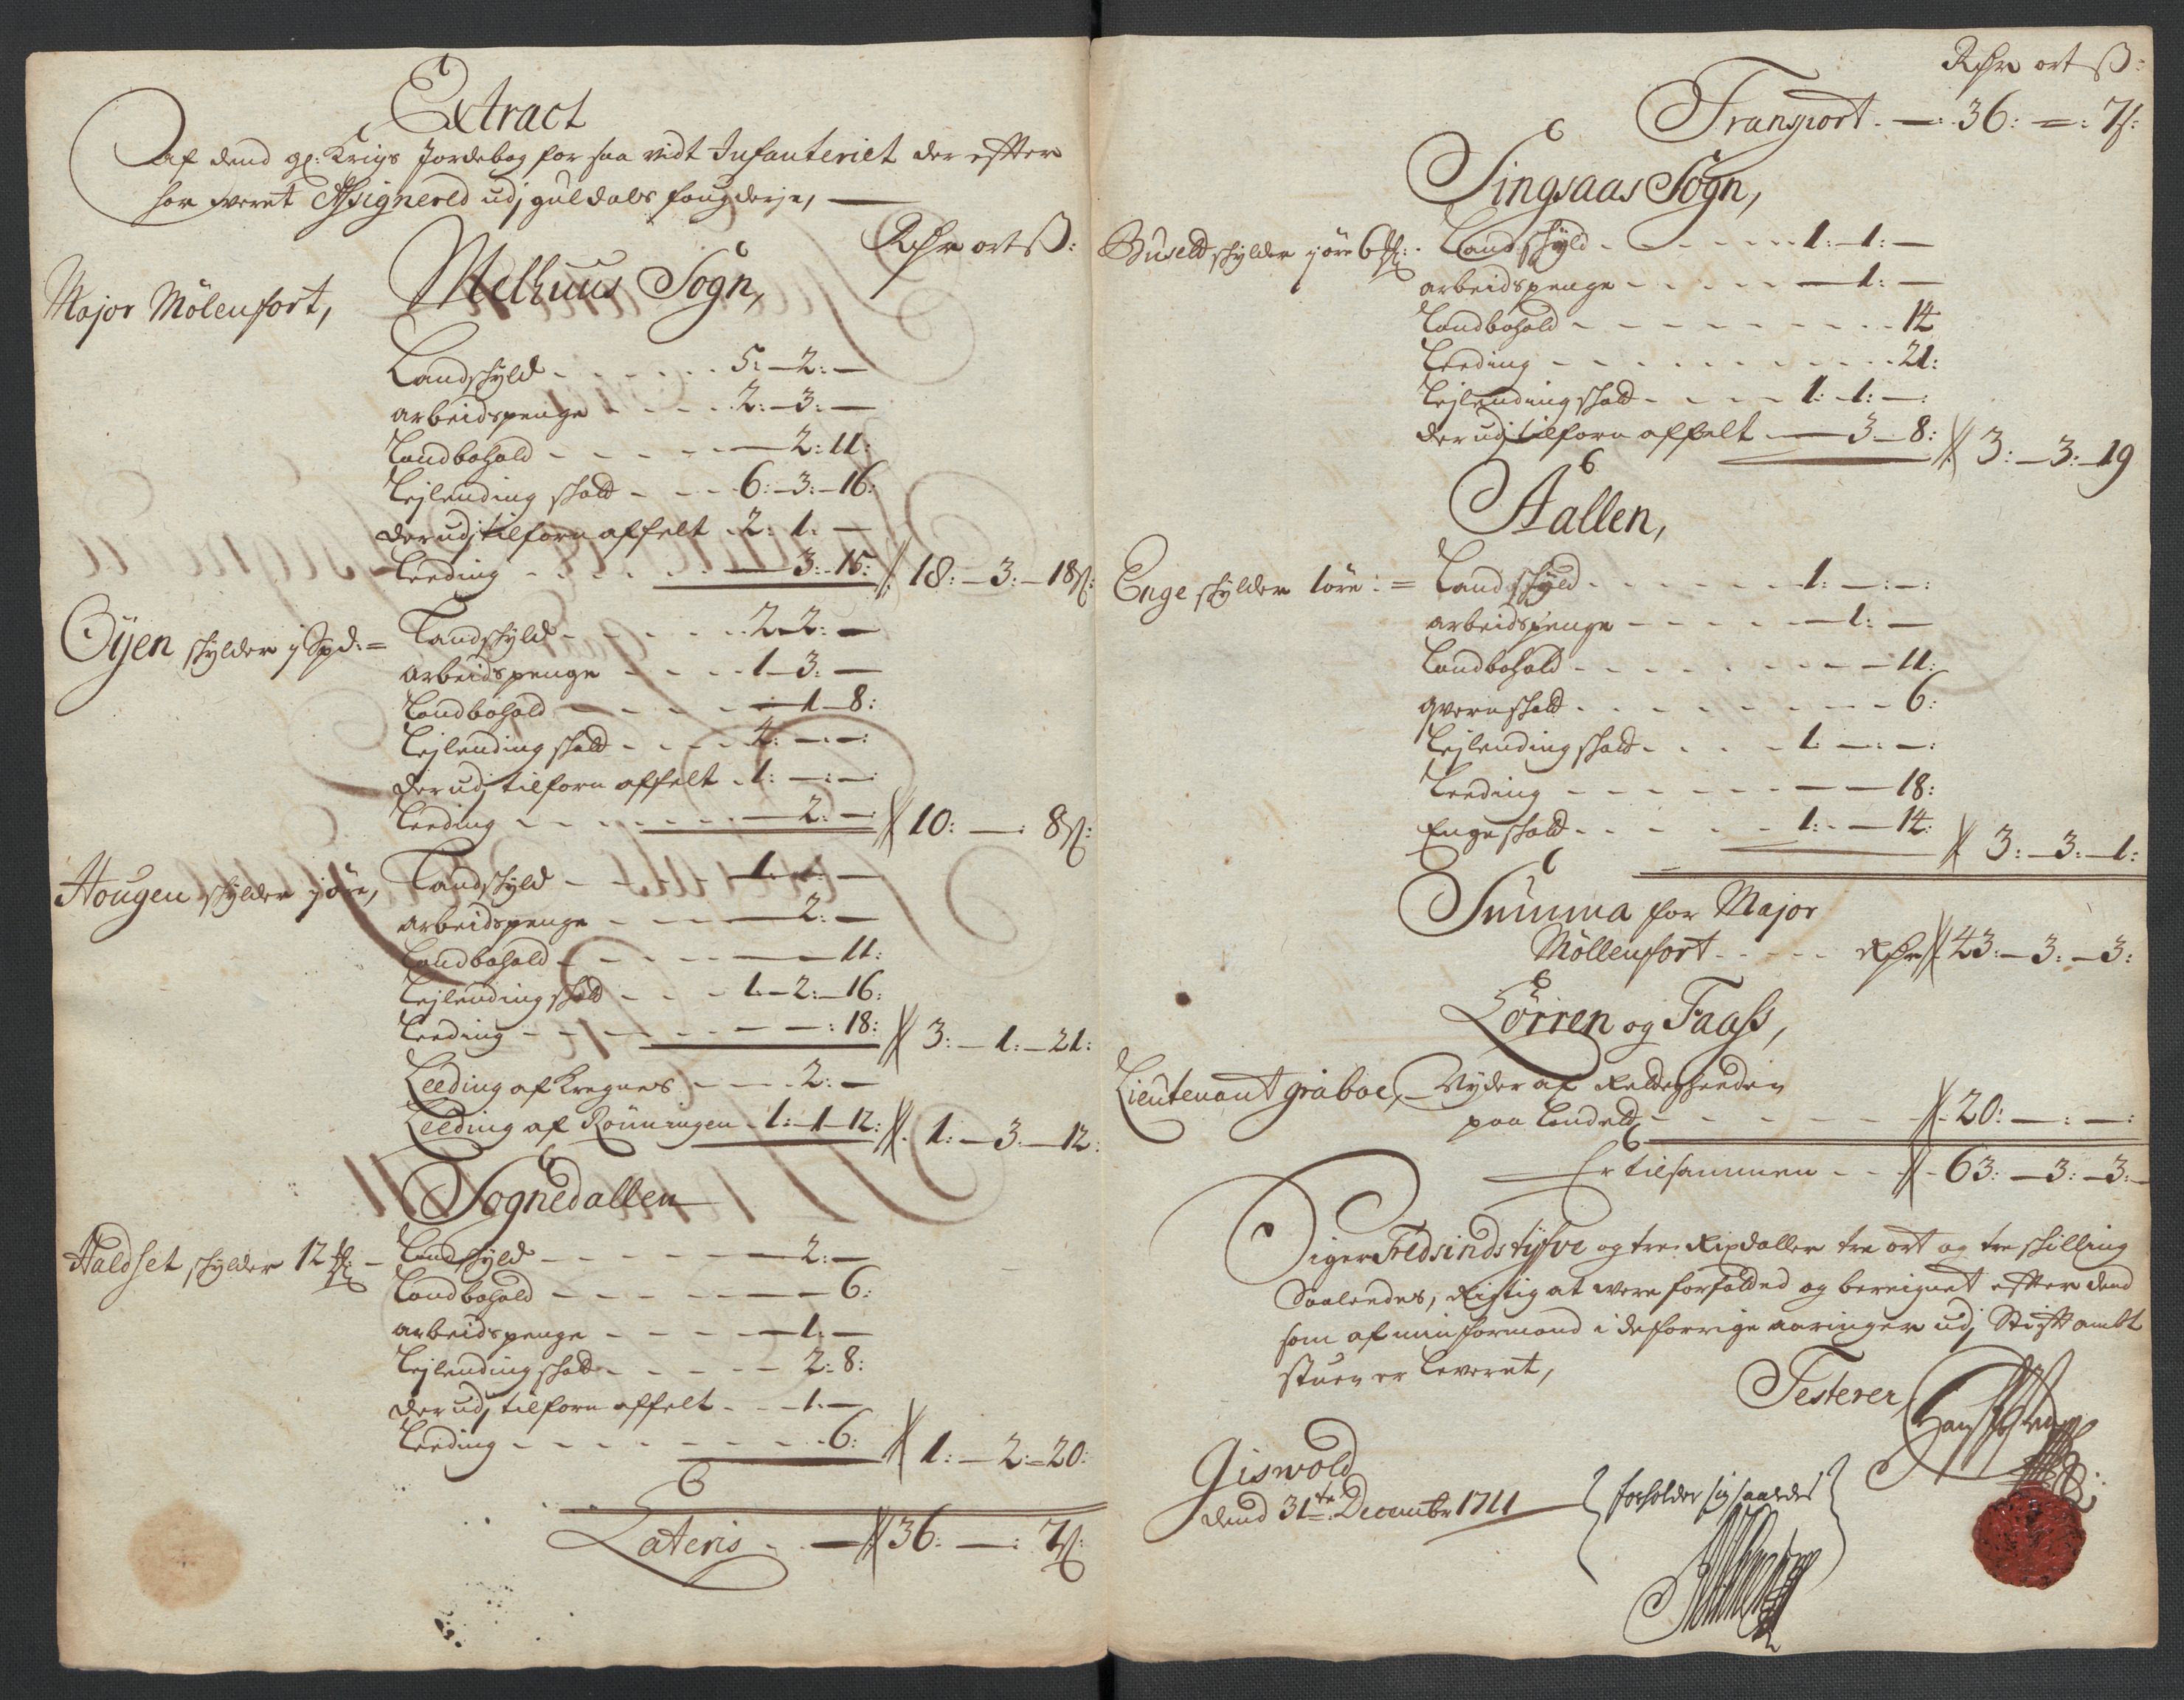 Extract
Af dend gl: Krigs Jordebog for saa vidt Infanteriet der efter
har veret Assignered udj Guldals fougderje, —
Rdr ort ß:
Major Mölenfort, Melhuus Sogn,
Landskyld - - - - - 5: — 2: —
arbeidspenge - - - - 2: — 3: —
Landbohold - - - - - — 2: 11:
Lejlending skatt - - - 6: — 3: — 16:
der udj tilforn affelt - 2: 1: —
Leeding - - - - - — 3: — 15: // 18: — 3: — 18ß:
Oÿen skylder j Spd: = Landskyld - - - - - 2 2: —
arbeidspenge - - - - 1 — 3: —
Landbohold - - - - — 1 — 8:
Lejlending skatt - - - - 4: — : — :
der udj tilforn affelt - 1: — : — :
Leeding - - - - - - — 2: — // 10: — : 8ß:
Hougen skylder j öre, Landskyld - - - - 1: 1: —
arbeidspenge - - - - — 2: —
Landbohold - - - - - — 11:
Lejlending skatt - - - 1: — 2: — 16:
Leeding - - - - - - — : 18: // 3: — 1: — 21:
Leeding af Kregnes - - - - 2: —
Leeding af Rönningen - 1: — 1 — 12: // 1: — 3: — 12:
Sognedallen
Haldset skylder 12 - Landskyld - - - - - — 2: —
Landbohold - - - - - — 6:
arbeidspenge - - - - — 1: —
Lejlending skatt - - - - - 2: 8:
der udj tilforn affelt - - - 1: —
Leeding - - - - - - - - 6: // 1: — 2: — 20:
Lateris - - — // 36: — : 7ß:
Rdr ort ß:
Transport - — 36: — : 7ß:
Singsaas Sogn,
Busett skylder j öre 6 : - Landskyld - - - - - - 1: — 1: —
arbeidspenge - - - - - — 1: —
Landbohold - - - - - - - - - 14
Leeding - - - - - - - - - - 21:
Lejlending skatt - - - - 1: 1: — :
der udj tilforn affelt - — 3 — 8: // 3: — 3: — 19
Aallen,
Enge skylder 1 öre: = Landskyld - - - - - - 1: — : — :
arbeidspenge - - - - - — 1: —
Landbohold - - - - - - - - — 11:
qvernskatt - - - - - - - - - 6:
Lejlending skatt - - - - 1: — : — :
Leeding - - - - - - — — 18:
Engeskatt - - - - - - 1: — 14: // 3: — 3: — 1:
Summa for Major
Möllenfort - - - - - Rdr // 43: — 3: — 3:
Lörren og Faass,
Lieutenant Graboe,
paa Landett - - - - - - // 20: — : — :
Er tilsammen - - // - 63: — 3: — 3: —
Siger Tredsindstÿfve og tre Rixdaller tre ort og tre skilling
Saaleedes, Rigtig at were forfalded og bereignet efter dend
som af min formand i de forrige aaringer udj Stiftamts
stuen er leveret,
Testerer
Giswold
dend 31te Decembr 1711
forholder sig saaledes